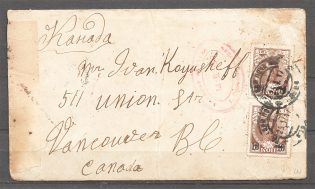 Канада
Mr. Ivan Koyuskeff
511 Union. Str
Vancouver B.C
Canada